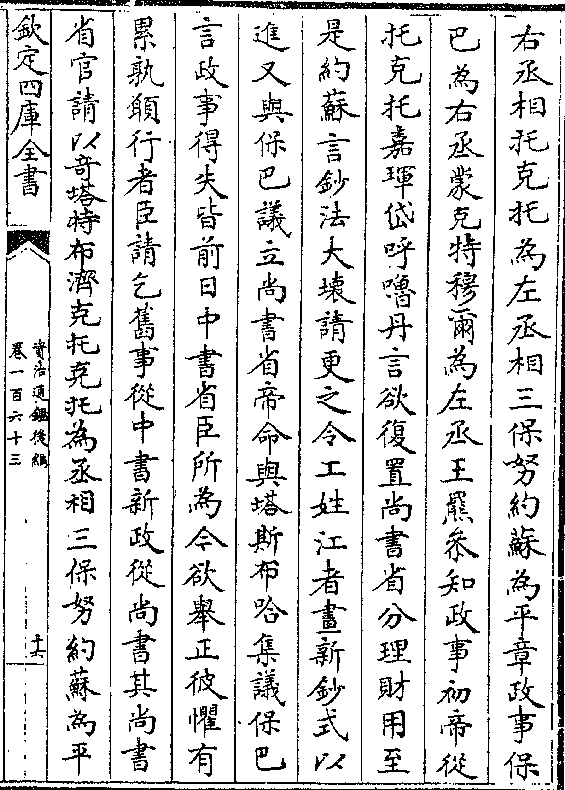 右丞相托克托為左丞相三保努約蘇為平章政事保
巴為右丞蒙克特穆爾為左丞王羆參知政事初帝從
托克托嘉琿岱呼嚕丹言欲復置尚書省分理財用至
是約蘇言鈔法大壞請更之令工姓江者畫新鈔式以
進又與保巴議立尚書省帝命與塔斯布哈集議保巴
言政事得失皆前日中書省臣所為今欲舉正彼懼有
累孰願行者臣請乞舊事從中書新政從尚書其尚書
省官請以奇塔特布濟克托克托為丞相三保努約蘇為平
欽定四庫全書
資治通鑑後編
卷一百六十三
十六